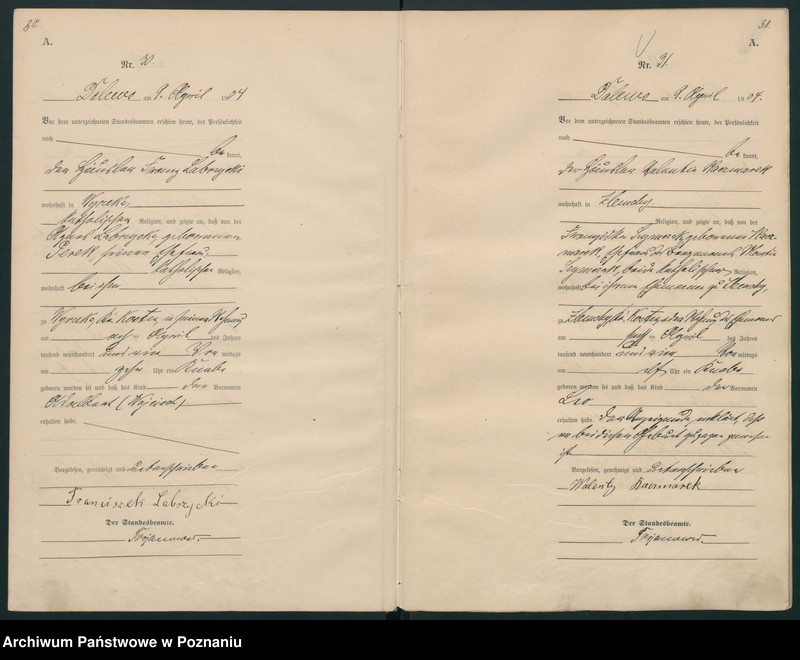 30.
A.
Nr. 30.
Dalewo am 9. April 1904
Vor dem unterzeichneten Standesbeamten erschien heute, der Persönlichkeit
nach
be kannt,
der Häusler Franz Labrzycki
wohnhaft in Wyrzeka,
katholischer Religion, und zeigte an, daß von der
Agnes Labrzycka geborenen
Perek, seiner Ehefrau,
katholischer Religion,
wohnhaft bei ihm
zu Wyrzeka, in seiner Wohnung
am April des Jahres
tausend neunhundert und vier Vor mittags
um zehn Uhr ein Knabe
geboren worden sei und daß das Kind den Vornamen
(Wojciech)
erhalten habe.
Vorgelesen, genehmigt und unterschrieben
Franciszek Labrzycki
Der Standesbeamte.
Trojanower.
31.
A.
Nr. 31.
Dalewo am 9. April 1904.
Vor dem unterzeichneten Standesbeamten erschien heute, der Persönlichkeit
nach
be kannt,
der Häusler Valentin Kaczmarek
wohnhaft in
Religion, und zeigte an, daß von der
Franziska Szymczak, geborenen Kacz-
marek, Ehefrau des Martin
Szymczak, beide katholischer Religion,
wohnhaft bei ihrem Ehemann zu
zu der Wohnung des Ehemanns
am April des Jahres
tausend neunhundert und vier Vor mittags
um elf Uhr ein Knabe
geboren worden sei und daß das Kind den Vornamen
Leo
erhalten habe. Der Anzeigende erklärt, daß
er bei dieser Geburt zugegen gewesen
ist.
Vorgelesen, genehmigt und unterschrieben
Walenty Kaczmarek
Der Standesbeamte.
Trojanower.
Archiwum Państwowe w Poznaniu